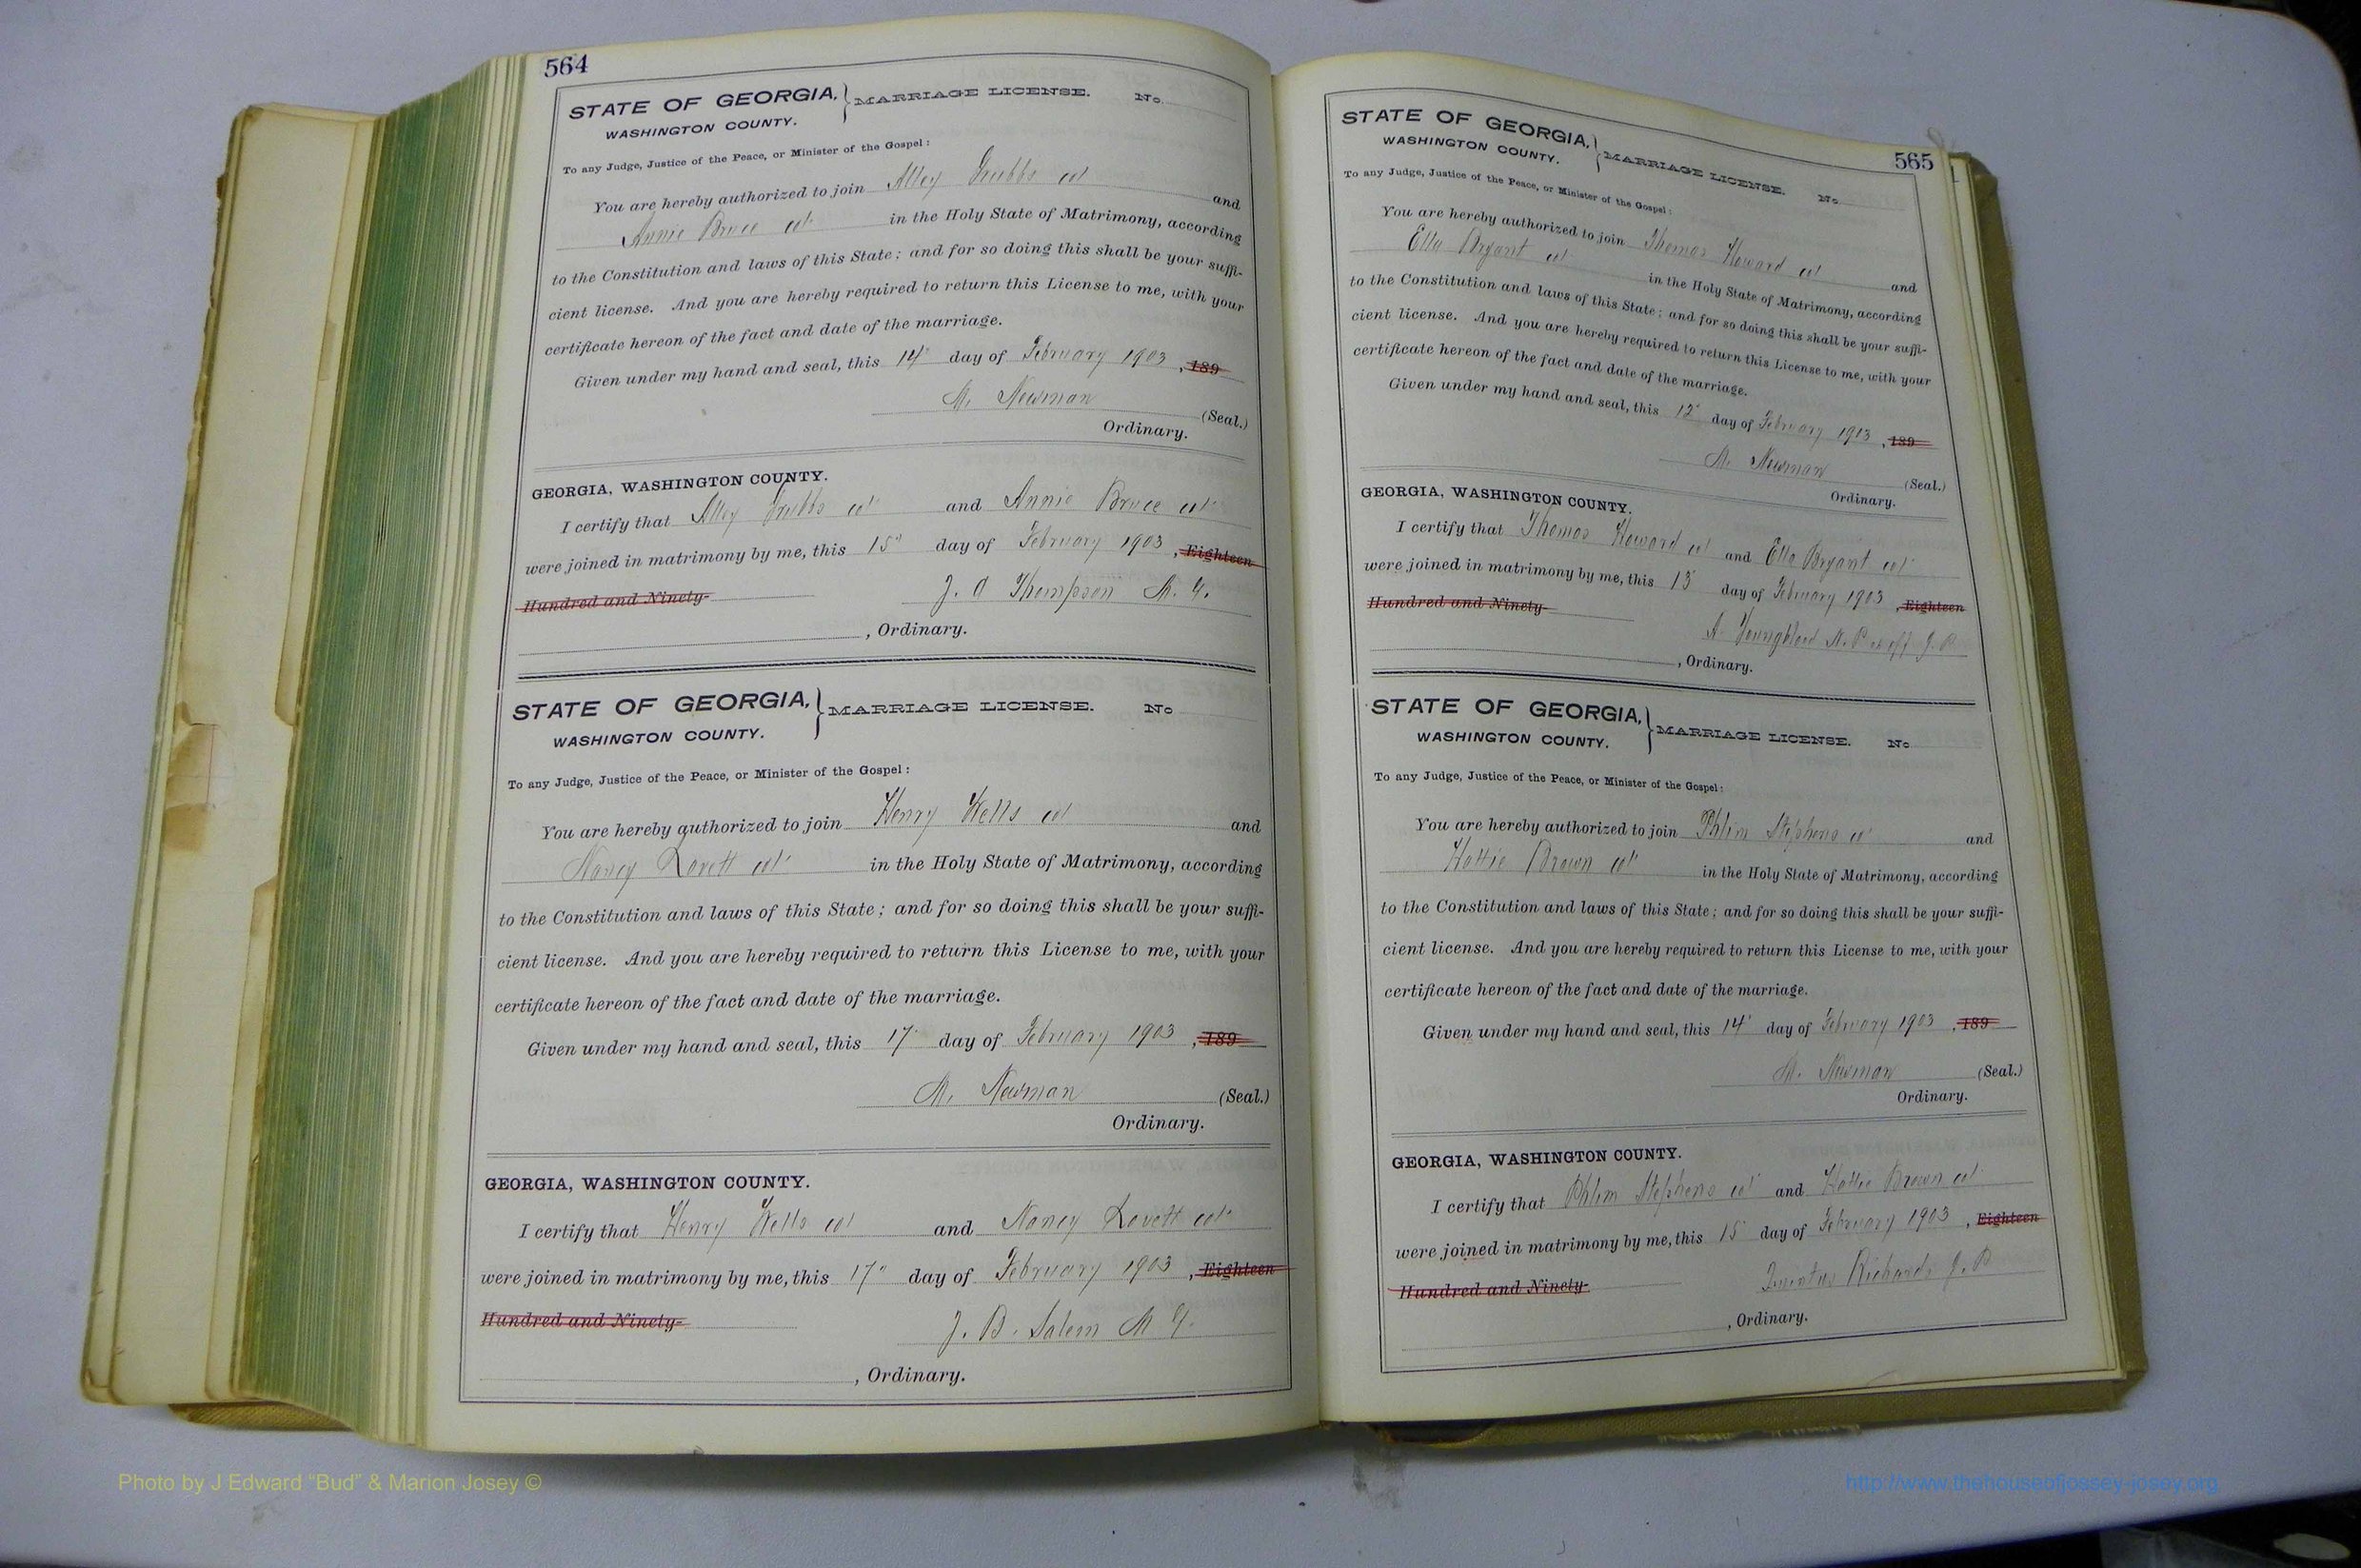 564
STATE OF GEORGIA, } MARRIAGE LICENSE. No.
WASHINGTON COUNTY.
To any Judge, Justice of the Peace, or Minister of the Gospel:
You are hereby authorized to join Alley Grubbs col and
Annie Bruce col in the Holy State of Matrimony, according
to the Constitution and laws of this State; and for so doing this shall be your suffi-
cient license. And you are hereby required to return this License to me, with your
certificate hereon of the fact and date of the marriage.
Given under my hand and seal, this 14" day of February 1903, 189
M. Newman (Seal.)
Ordinary.
GEORGIA, WASHINGTON COUNTY.
I certify that Alley Grubbs col and Annie Bruce col
were joined in matrimony by me, this 15" day of February 1903, Eighteen
Hundred and Ninety- J. A Thompson M. G.
, Ordinary.
STATE OF GEORGIA, } MARRIAGE LICENSE. No
WASHINGTON COUNTY.
To any Judge, Justice of the Peace, or Minister of the Gospel:
You are hereby authorized to join Henry Wells col and
Nancy Lovett col in the Holy State of Matrimony, according
to the Constitution and laws of this State; and for so doing this shall be your suffi-
cient license. And you are hereby required to return this License to me, with your
certificate hereon of the fact and date of the marriage.
Given under my hand and seal, this 17" day of February 1903, 189
M. Newman (Seal.)
Ordinary.
GEORGIA, WASHINGTON COUNTY.
I certify that Henry Wells col and Nancy Lovett col
were joined in matrimony by me, this 17" day of February 1903, Eighteen
Hundred and Ninety- J. B. Salem M G.
, Ordinary.
565
STATE OF GEORGIA, } MARRIAGE LICENSE. No
WASHINGTON COUNTY.
To any Judge, Justice of the Peace, or Minister of the Gospel:
You are hereby authorized to join Thomas Howard col and
Ella Bryant col in the Holy State of Matrimony, according
to the Constitution and laws of this State; and for so doing this shall be your suffi-
cient license. And you are hereby required to return this License to me, with your
certificate hereon of the fact and date of the marriage.
Given under my hand and seal, this 12" day of February 1903, 189
M. Newman (Seal.)
Ordinary.
GEORGIA, WASHINGTON COUNTY.
I certify that Thomas Howard col and Ella Bryant col
were joined in matrimony by me, this 13" day of February 1903, Eighteen
Hundred and Ninety- A. Youngblood N. P. ex off J. P.
, Ordinary.
STATE OF GEORGIA, } MARRIAGE LICENSE. No
WASHINGTON COUNTY.
To any Judge, Justice of the Peace, or Minister of the Gospel:
You are hereby authorized to join Phlim Stephens col and
Hattie Brown col in the Holy State of Matrimony, according
to the Constitution and laws of this State; and for so doing this shall be your suffi-
cient license. And you are hereby required to return this License to me, with your
certificate hereon of the fact and date of the marriage.
Given under my hand and seal, this 14" day of February 1903, 189
M. Newman (Seal.)
Ordinary.
GEORGIA, WASHINGTON COUNTY.
I certify that Phlim Stephens col and Hattie Brown col
were joined in matrimony by me, this 15" day of February 1903, Eighteen
Hundred and Ninety- Richards J. P.
, Ordinary.
Photo by J Edward “Bud” & Marion Josey ©
http://www.thehouseofjossey-josey.org